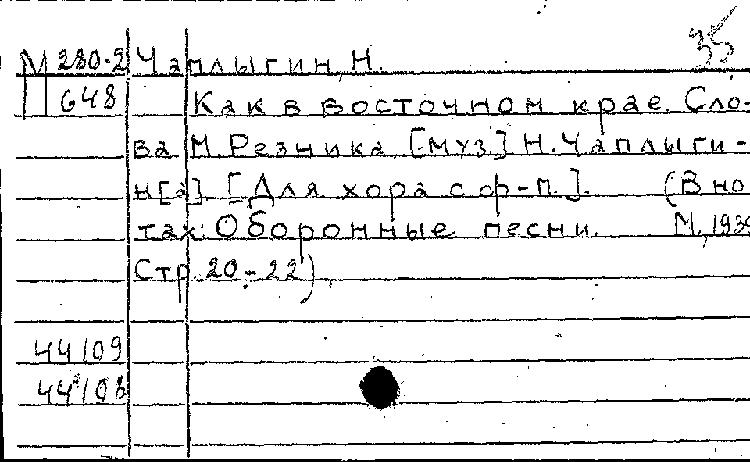 35
М 280-2 Чаплыгин, Н.
648 Как в восточном крае. Сло-
ва М. Резчика [муз] Н. Чаплыги-
н[а]. [Для хора с ф-п.]. (В но-
тах: Оборонные песни. М., 193
Стр. 20-22).
44109